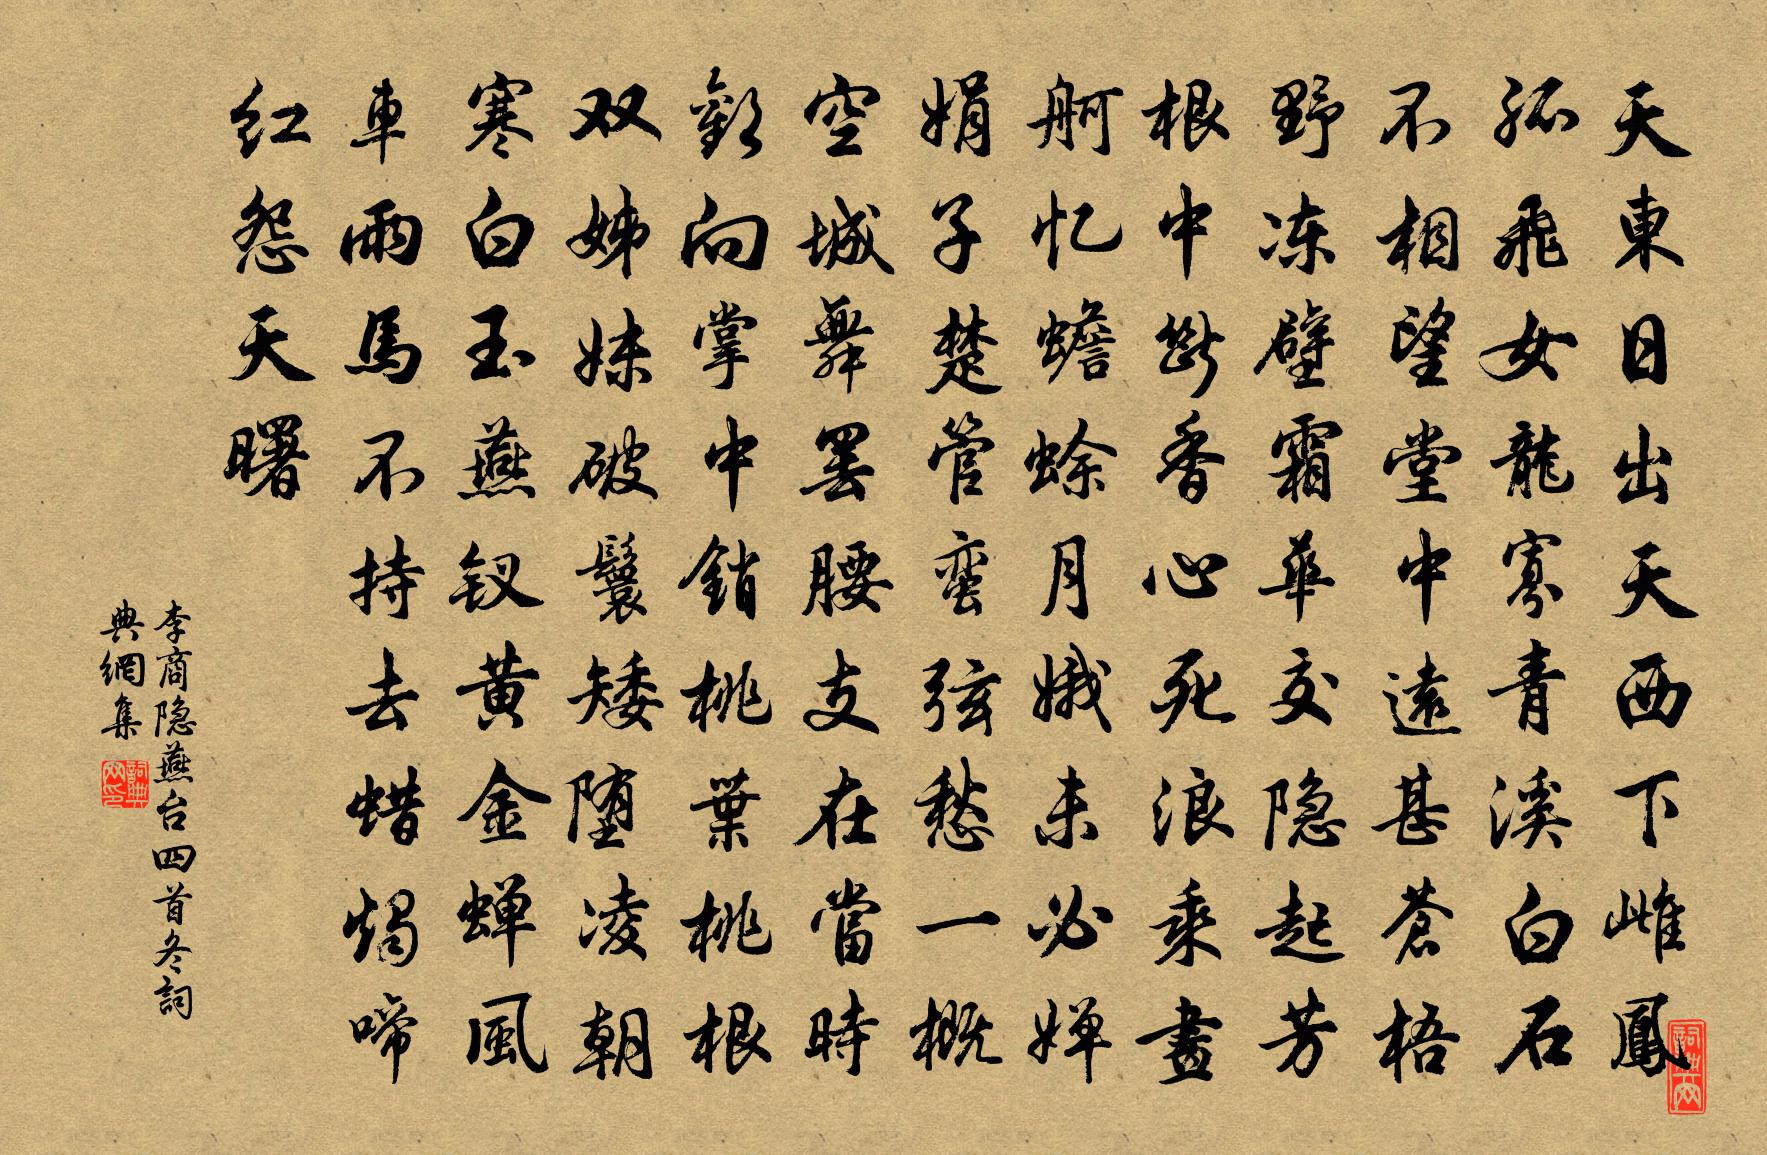 天東日出天西下雌鳳
孤飛女龍寡青溪白石
不相望堂中遠甚蒼梧
野冻壁霜華交隐起芳
根中斷香心死浪乘畫
舸忆蟾蜍月娥未必婵
娟子楚管蛮弦愁一概
空城舞罢腰支在當時
歡向掌中銷桃葉桃根
双姊妹破鬟矮堕凌朝
寒白玉燕钗黄金蝉風
車雨馬不持去蜡燭啼
红怨天曙
李商隐燕台四首冬詞
典網集
詞典网
詞典网印